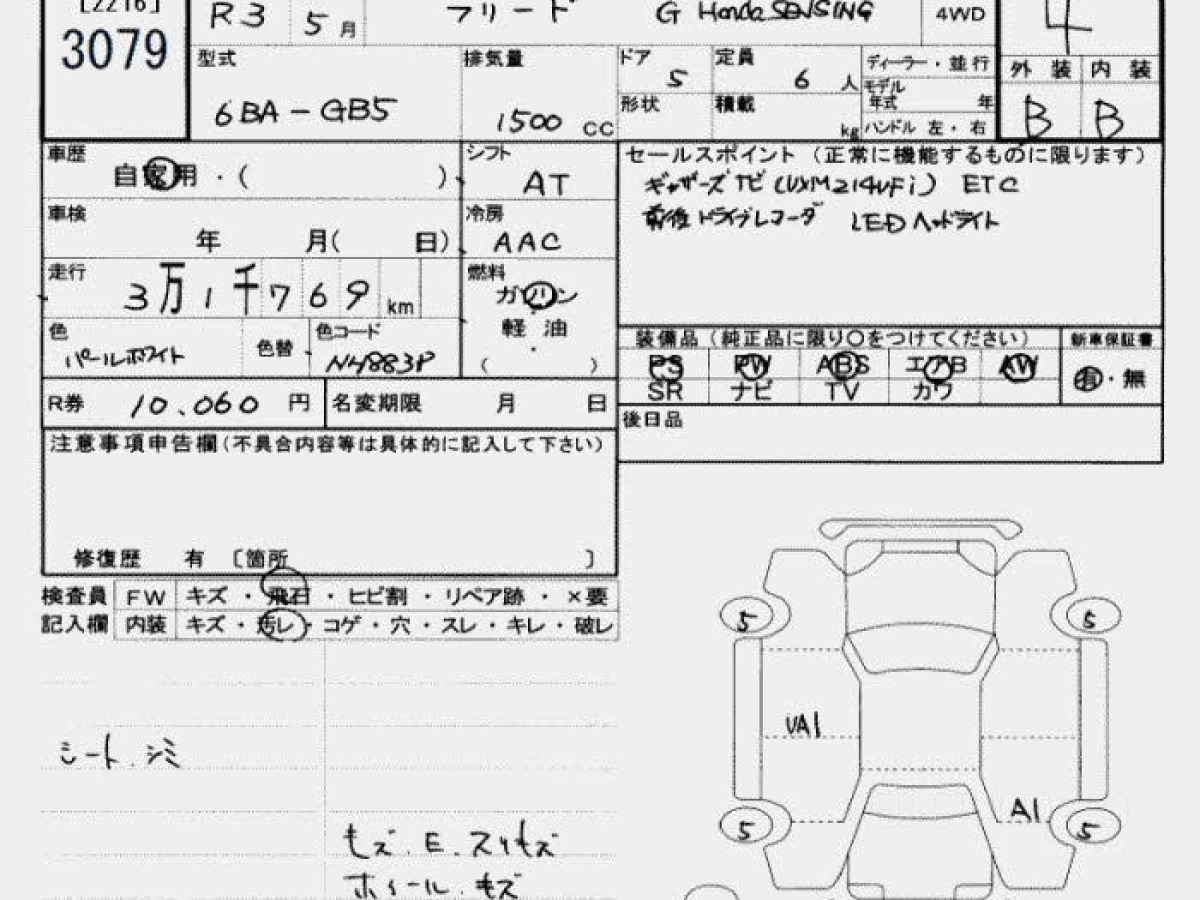 [2216]
3079
R3 5月 フリード G Honda SENSING 4WD 4
型式 6BA-GB5
排気量 1500 CC
ドア 5
定員 6 人
形状
積載 kg
ディーラー・並行
モデル年式 年
ハンドル 左・右
外装 内装
B B
車歴 自家用・( )
シフト AT
車検 年 月( 日)
冷房 AAC
走行 3万1千769 km
燃料 ガソリン
軽油
( )
色 パールホワイト
色替
色コード NH883P
R券 10.060 円
名変期限 月 日
セールスポイント(正常に機能するものに限ります)
ギャザーズTビ(VXM214VFi) ETC
前後ドライブレコーダ LEDヘッドライト
装備品(純正品に限り○をつけてください) 新車保証書
PS PW ABS エアB AW 有・無
SR ナビ TV カワ
後日品
注意事項申告欄(不具合内容等は具体的に記入して下さい)
修復歴 有 〔箇所 〕
検査員 FW キズ・飛石・ヒビ割・リペア跡・×要
記入欄 内装 キズ・汚レ・コゲ・穴・スレ・キレ・破レ
シート.シミ
キズ.E.スリキズ
ホイール.キズ
5 5
UA1
A1
5 5